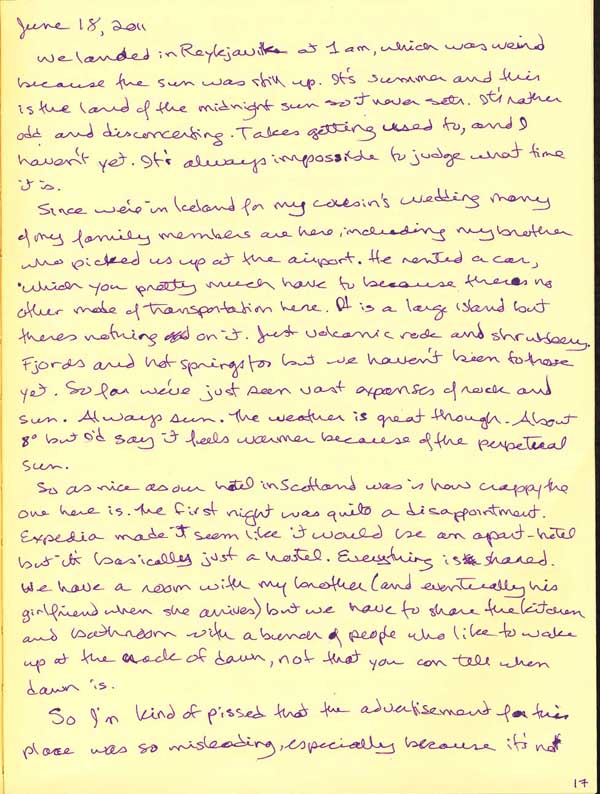 June 18, 2011
We landed in Reykjavik at 1 am, which was weird
because the sun was still up. It's summer and this
is the land of the midnight sun so it never sets. It's rather
odd and disconcerting. Takes getting used to, and I
haven't yet. It's always impossible to judge what time
it is.
Since we're in Iceland for my cousin's wedding many
of my family members are here, including my brother
who picked us up at the airport. He rented a car,
which you pretty much have to because there's no
other mode of transportation here. It is a large island but
theres nothing on it. Just volcanic rock and shrubbery.
Fjords and hot springs too but we haven't been to those
yet. So far we've just seen vast expanses of rock and
sun. Always sun. The weather is great though. About
8° but I'd say it feels warmer because of the perpetual
sun.
So as nice as our hotel in Scotland was is how crappy the
one here is. The first night was quite a disappointment.
Expedia made it seem like it would be an apart-hotel
but it's basically just a hostel. Everything is shared.
We have a room with my brother (and eventually his
girlfriend when she arrives) but we have to share the kitchen
and bathroom with a bunch of people who like to wake
up at the crack of dawn, not that you can tell when
dawn is.
So I'm kind of pissed that the advertisement for this
place was so misleading, especially because it's not
17